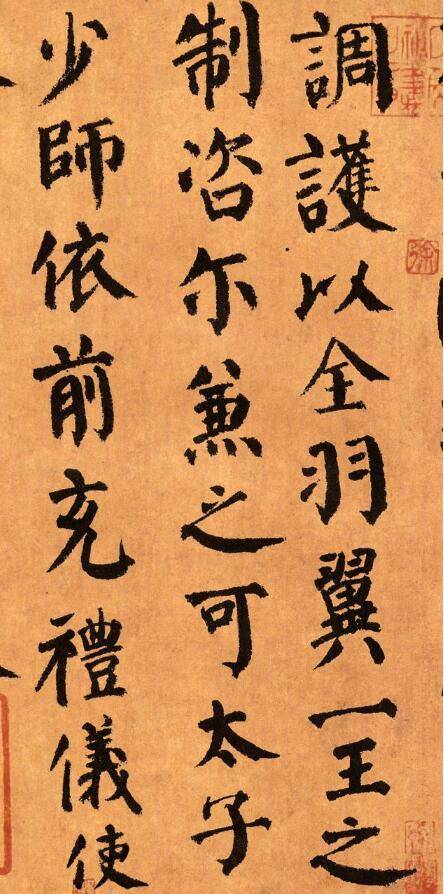 調護以全羽翼一王之
制咨尒兼之可太子
少師依前充禮儀使